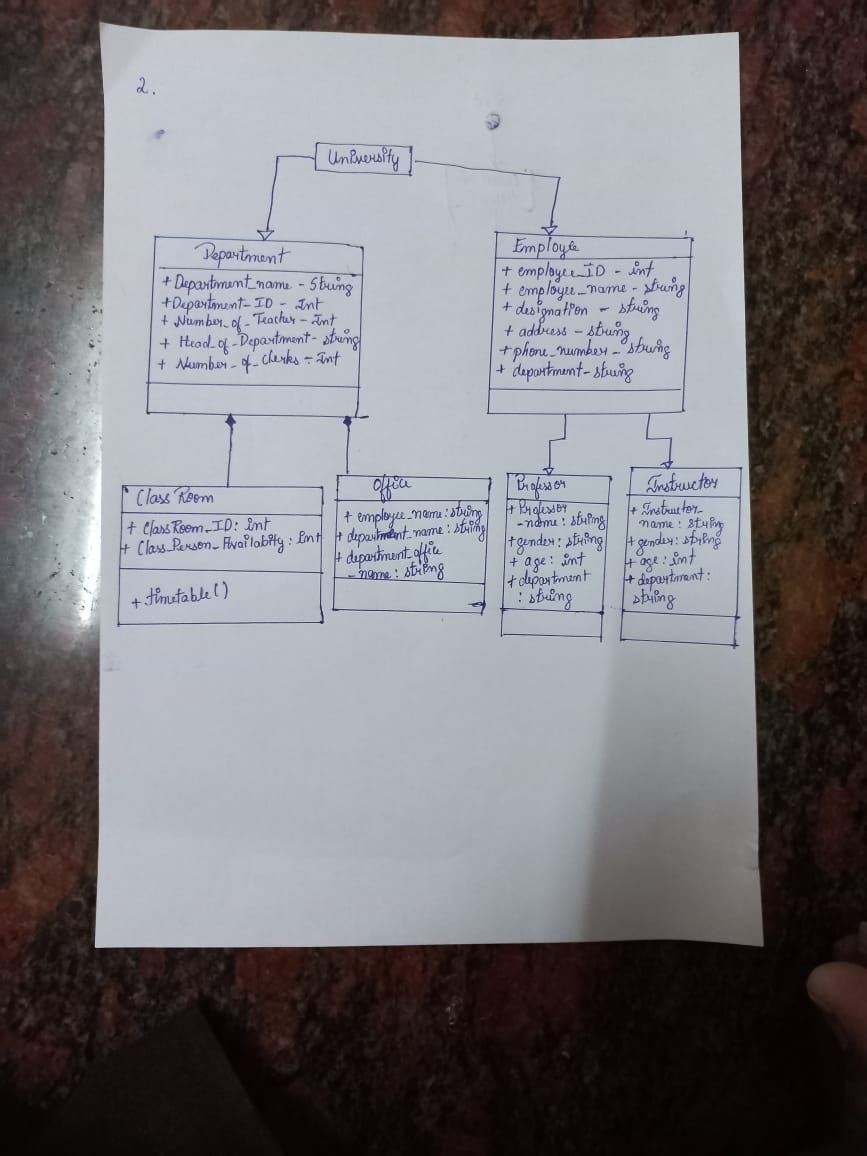 2.
University
Department
+ Department_name - String
+ Department_ID - Int
+ Number_of_Teacher - Int
+ Head_of_Department - string
+ Number_of_Clerks - Int
Employee
+ employee_ID - int
+ employee_name - string
+ designation - string
+ address - string
+ phone_number - string
+ department - string
Class Room
+ ClassRoom_ID: int
+ Class_Person_Availabity: Int
+ timetable()
Office
+ employee_name: string
+ department_name: string
+ department_office
-name: string
Professor
+ Professor
-name: string
+ gender: string
+ age: int
+ department
: string
Instructor
+ Instructor_
name: string
+ gender: string
+ age: int
+ department:
string